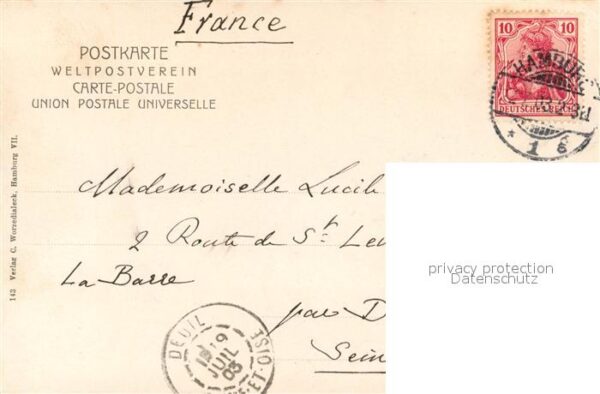 France
POSTKARTE
WELTPOSTVEREIN
CARTE-POSTALE
UNION POSTALE UNIVERSELLE
10 10
DEUTSCHES REICH
HAMBURG
* 1 6
Mademoiselle Lucil
2 Route de St Leu
La Barre
par D
Sein
DEUIL
19
JUIL
03
ET-OISE
143 Verlag C. Worzedialeck, Hamburg VII.
privacy protection
Datenschutz